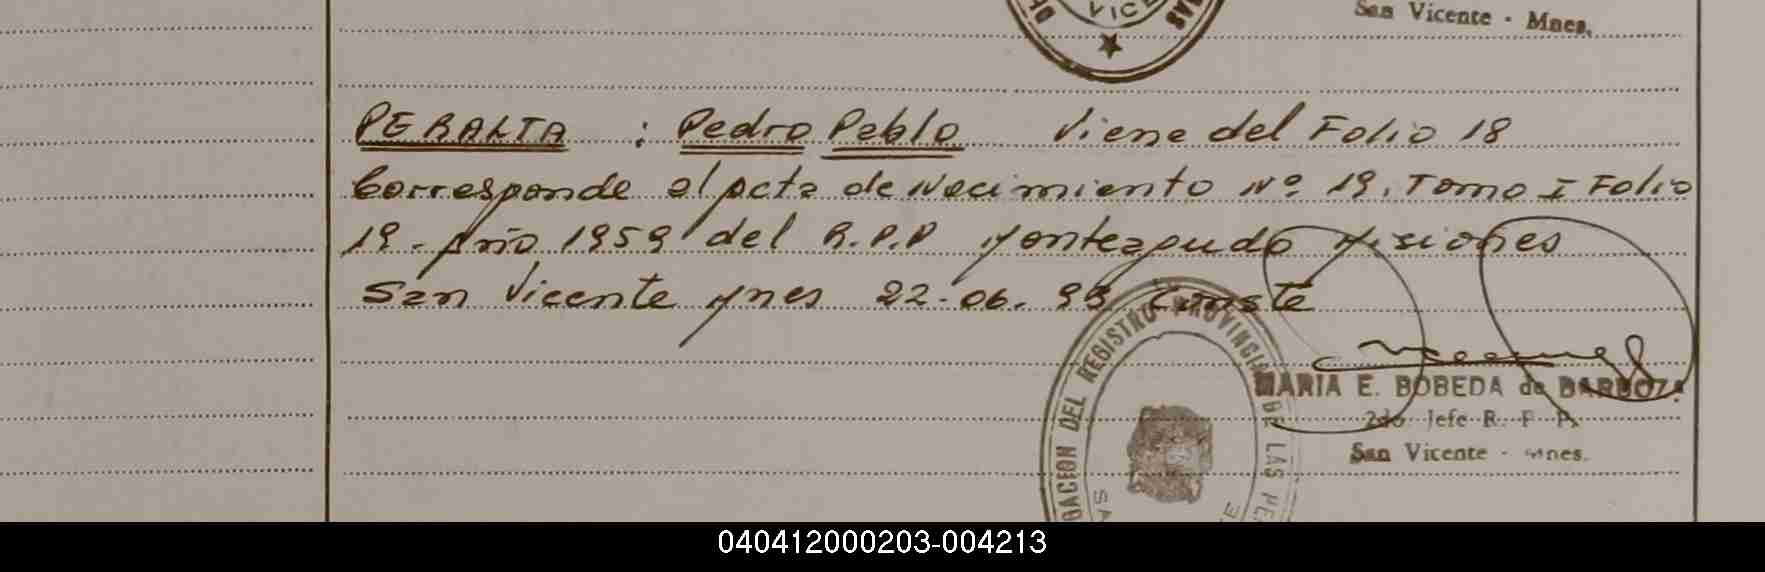 VICE
San Vicente - Mnes.
PERALTA : Pedro Pablo Viene del Folio 18
Corresponde al acta de Nacimiento Nº 19. Tomo I Folio
19. Año 1959 del R.P.P Monteagudo Misiones
San Vicente Mnes 22-06-93 Conste
GACION DEL REGISTRO PROVINCIAL DE LAS PE
MARIA E. BOBEDA de BARBOZA
2do Jefe R. P. P.
San Vicente - Mnes.
040412000203-004213